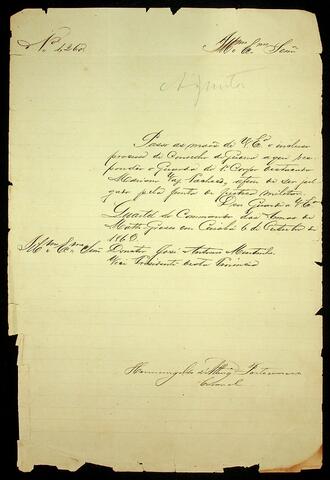 Nº 1,260.
Illmo Exmo Senr
Passo as mãos de V. Exª o incluso
processo de Conselho de Guerra a que res-
pondeo o Guarda do 1º Corpo destacado
afim de ser jul-
gado pela Junta de Justiça militar.
Deos Guarde a V. Exª
Quartel do Commando das Armas de
Matto Grosso em Cuiabá 6 de Outubro de
1863.
Illmo Exmo Senr
José Antonio
Vice Presidente desta Provincia
Coronel